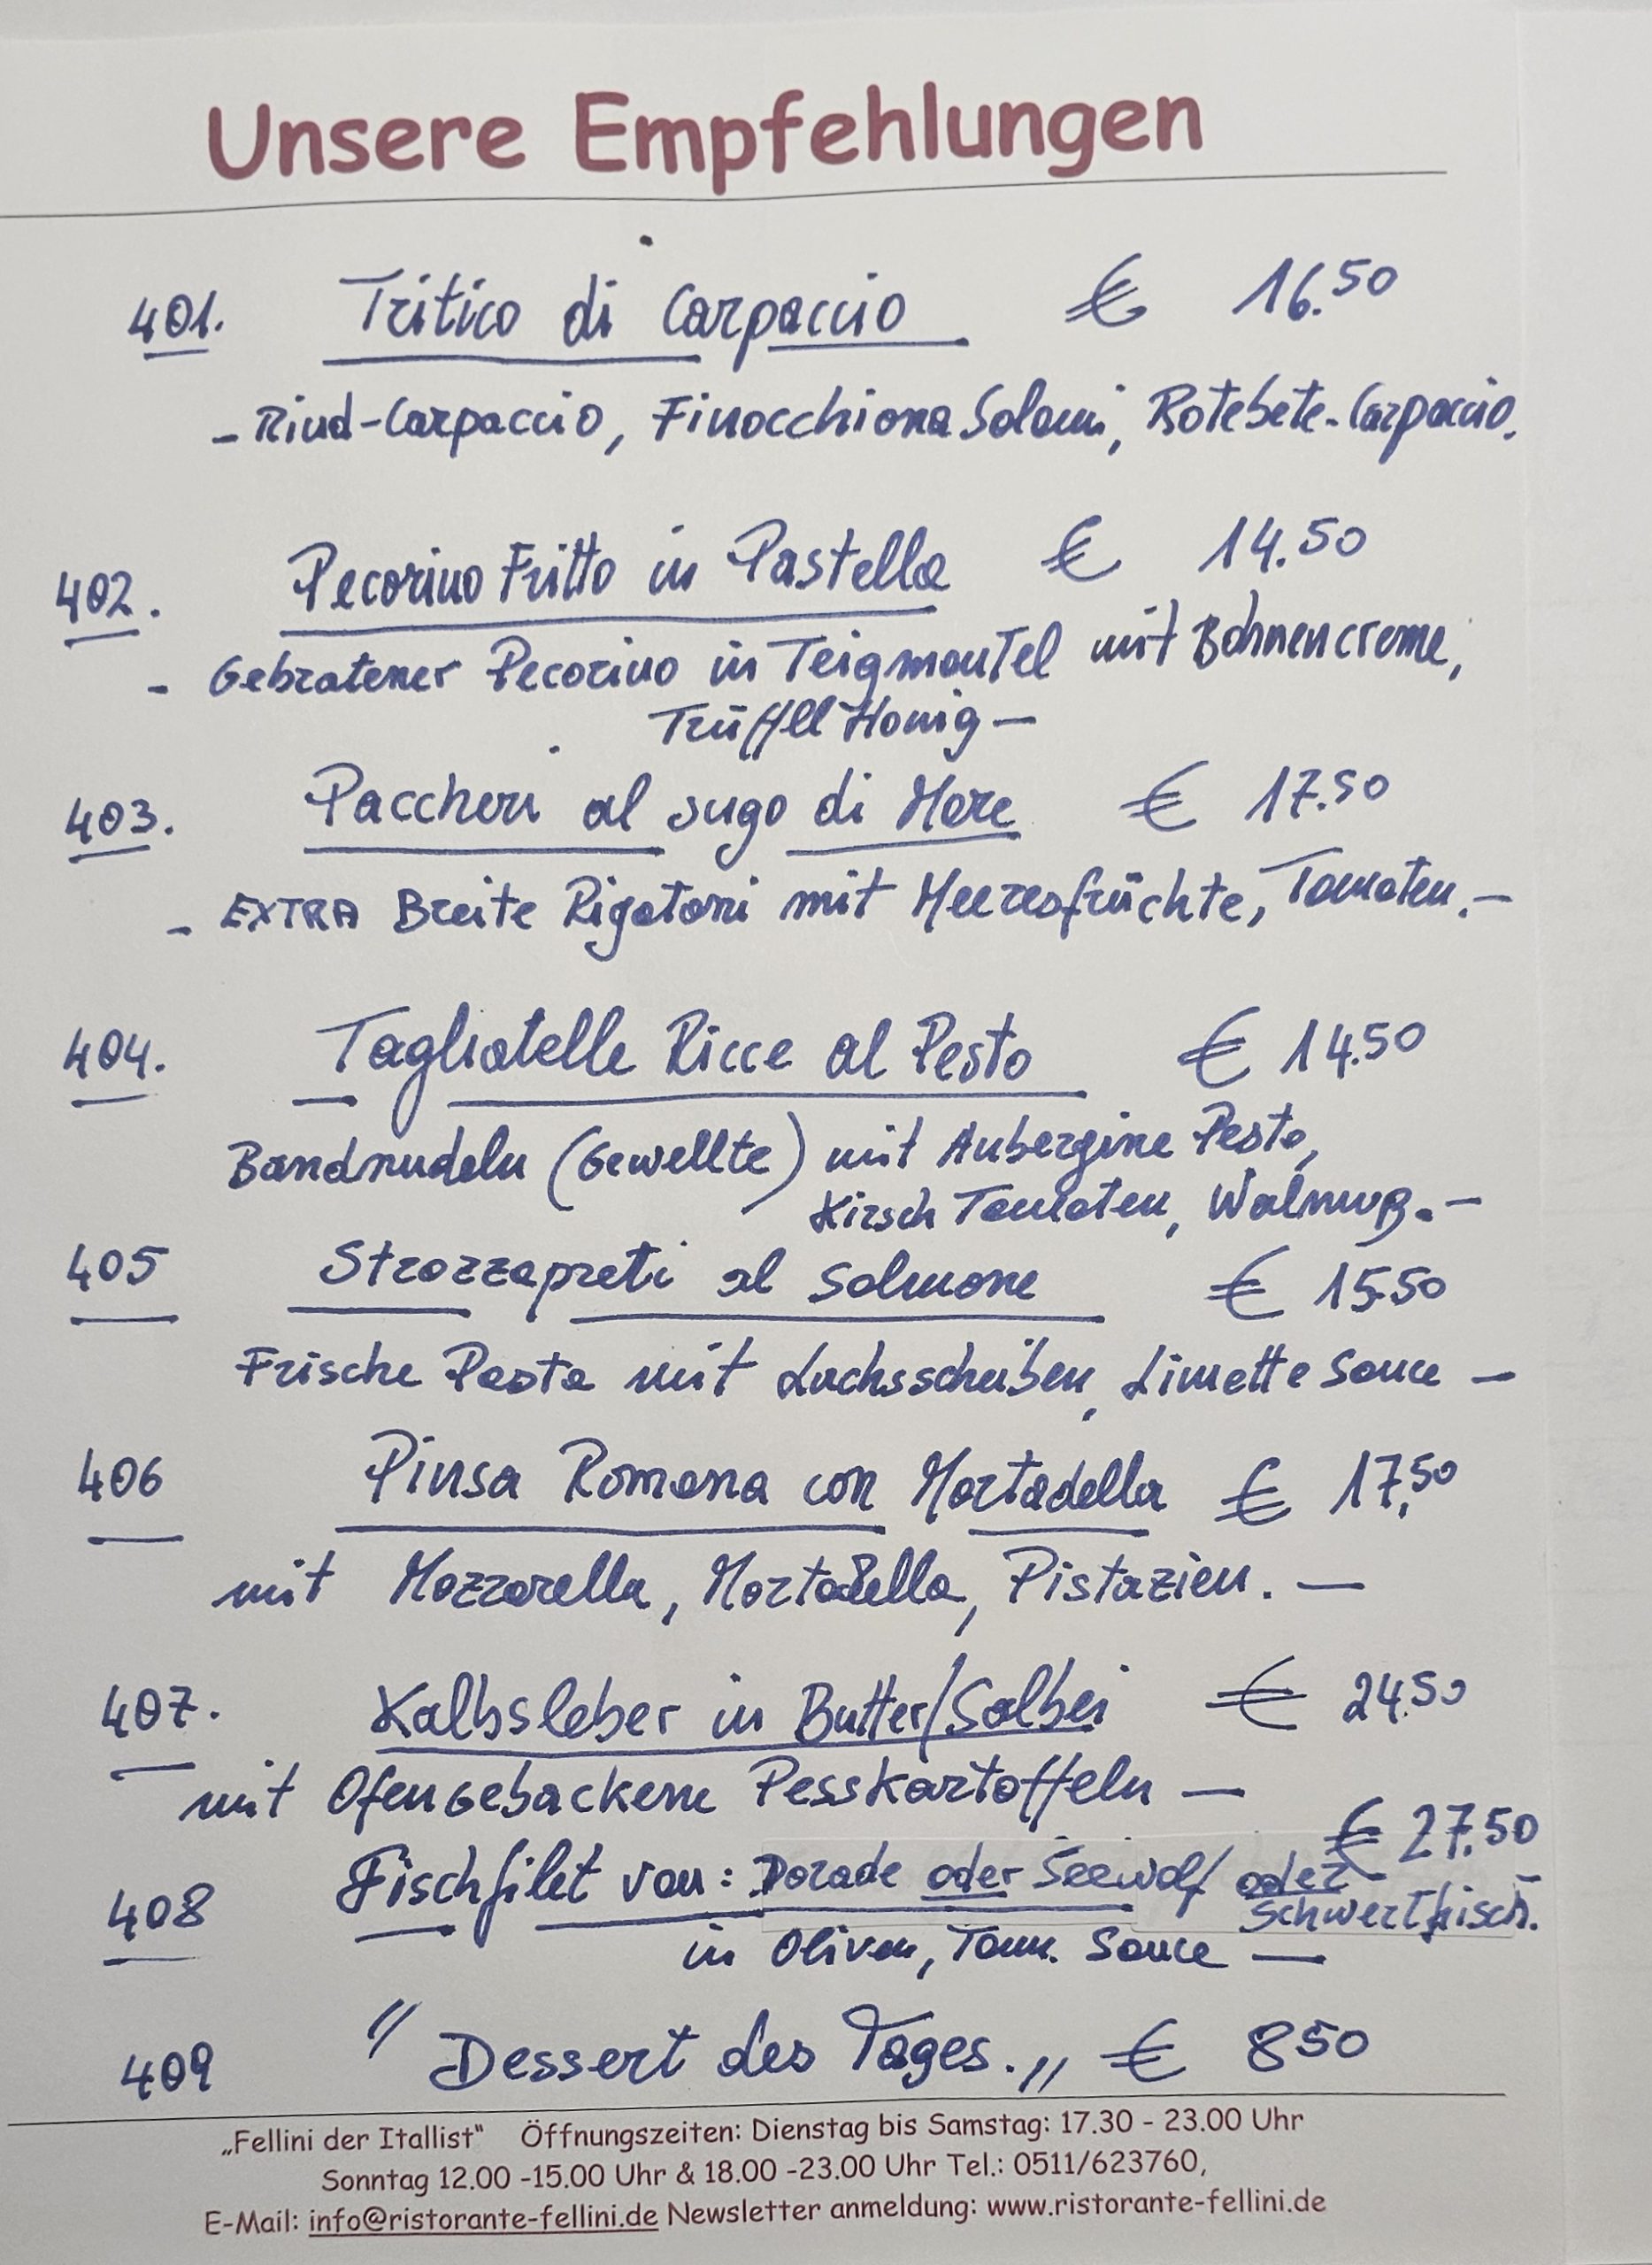 Unsere Empfehlungen
401. Tritico di Carpaccio € 16.50
- Rind-Carpaccio, Finocchiona Salami, Rotebete-Carpaccio.
402. Pecorino Fritto in Pastella € 14.50
- Gebratener Pecorino in Teigmantel mit Bohnencreme,
Trüffel Honig -
403. Paccheri al sugo di Mare € 17.50
- EXTRA Breite Rigatoni mit Meeresfrüchte, Tomaten. -
404. Tagliatelle Ricce al Pesto € 14.50
Bandnudeln (Gewellte) mit Aubergine Pesto,
Kirsch Tomaten, Walnuß. -
405 Strozzapreti al Salmone € 15.50
Frische Pasta mit Lachsscheiben, Limette Sauce -
406 Pinsa Romana con Mortadella € 17,50
mit Mozzarella, Mortadella, Pistazien. -
407. Kalbsleber in Butter/Salbei € 24.50
mit Ofengebackene Pesskartoffeln -
€ 27.50
408 Fischfilet von: Dorade oder Seewolf oder
Schwertfisch.
in Oliven, Tom. Sauce -
409 "Dessert des Tages.„ € 850
„Fellini der Itallist“ Öffnungszeiten: Dienstag bis Samstag: 17.30 - 23.00 Uhr
Sonntag 12.00 -15.00 Uhr & 18.00 -23.00 Uhr Tel.: 0511/623760,
E-Mail: info@ristorante-fellini.de Newsletter anmeldung: www.ristorante-fellini.de